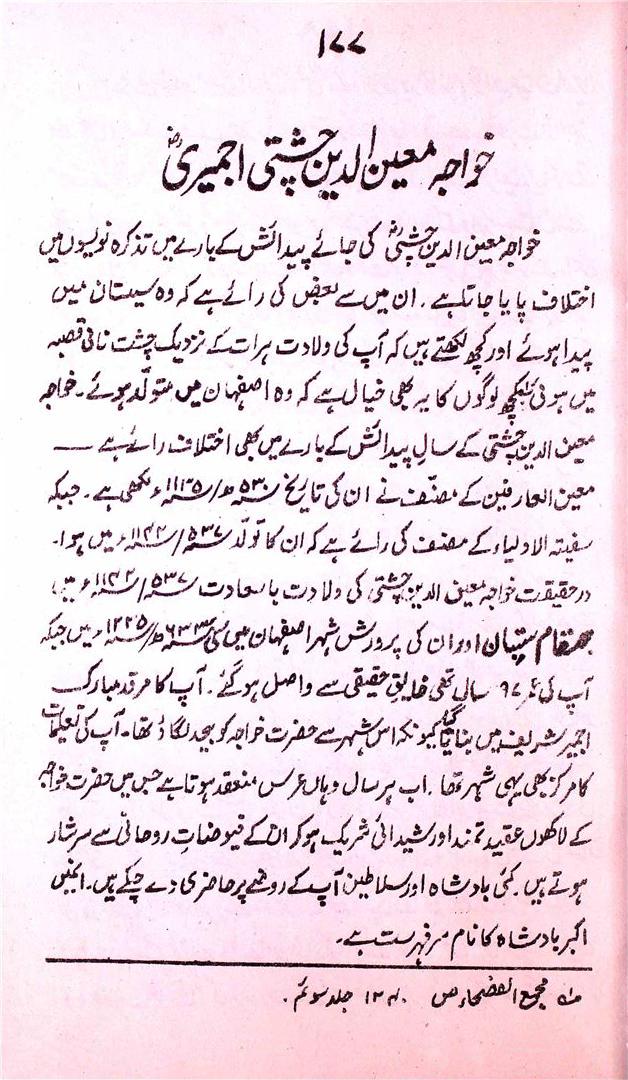 ۱۷۷
خواجہ معین الدین چشتی اجمیریؒ
خواجہ معین الدین چشتیؒ کی جائے پیدائش کے بارے میں تذکرہ نویسوں میں
اختلاف پایا جاتا ہے۔ ان میں سے بعض کی رائے ہے کہ وہ سیستان میں
پیدا ہوئے اور کچھ لکھتے ہیں کہ آپ کی ولادت ہرات کے نزدیک چشت نامی قصبہ
میں ہوئی کچھ لوگوں کا یہ بھی خیال ہے کہ وہ اصفہان میں متولّد ہوئے۔ خواجہ
معین الدین چشتی کے سالِ پیدائش کے بارے میں بھی اختلاف رائے ہے —
معین العارفین کے مصنّف نے ان کی تاریخ ۵۳۰ھ/۱۱۳۵ء لکھی ہے۔ جبکہ
سفینۃ الاولیاء کے مصنف کی رائے ہے کہ ان کا تولّد ۵۳۷/۱۱۴۲ء میں ہوا۔
درحقیقت خواجہ معین الدین چشتی کی ولادت باسعادت ۵۳۷/۱۱۴۲ء میں
بمقام سیستان اور ان کی پرورش شہر اصفہان میں ہوئی ۶۳۳ھ/۱۲۳۵ء میں جبکہ
آپ کی عمر ۹۷ سال تھی خالقِ حقیقی سے واصل ہو گئے۔ آپ کا مرقد مبارک
اجمیر شریف میں بنایا گیا کیونکہ اس شہر سے حضرت خواجہ کو بیحد لگاؤ تھا۔ آپ کی تعلیمات
کا مرکز بھی یہی شہر تھا۔ اب ہر سال وہاں عرس منعقد ہوتا ہے جس میں حضرت خواجہ
کے لاکھوں عقیدتمند اور شیدائی شریک ہو کر ان کے فیوضاتِ روحانی سے سرشار
ہوتے ہیں۔ کئی بادشاہ اور سلاطین آپ کے روضے پر حاضری دے چکے ہیں۔ انمیں
اکبر بادشاہ کا نام سرفہرست ہے۔
مجمع الفضحاء ص ۱۳۴۰ جلد سوئم۔